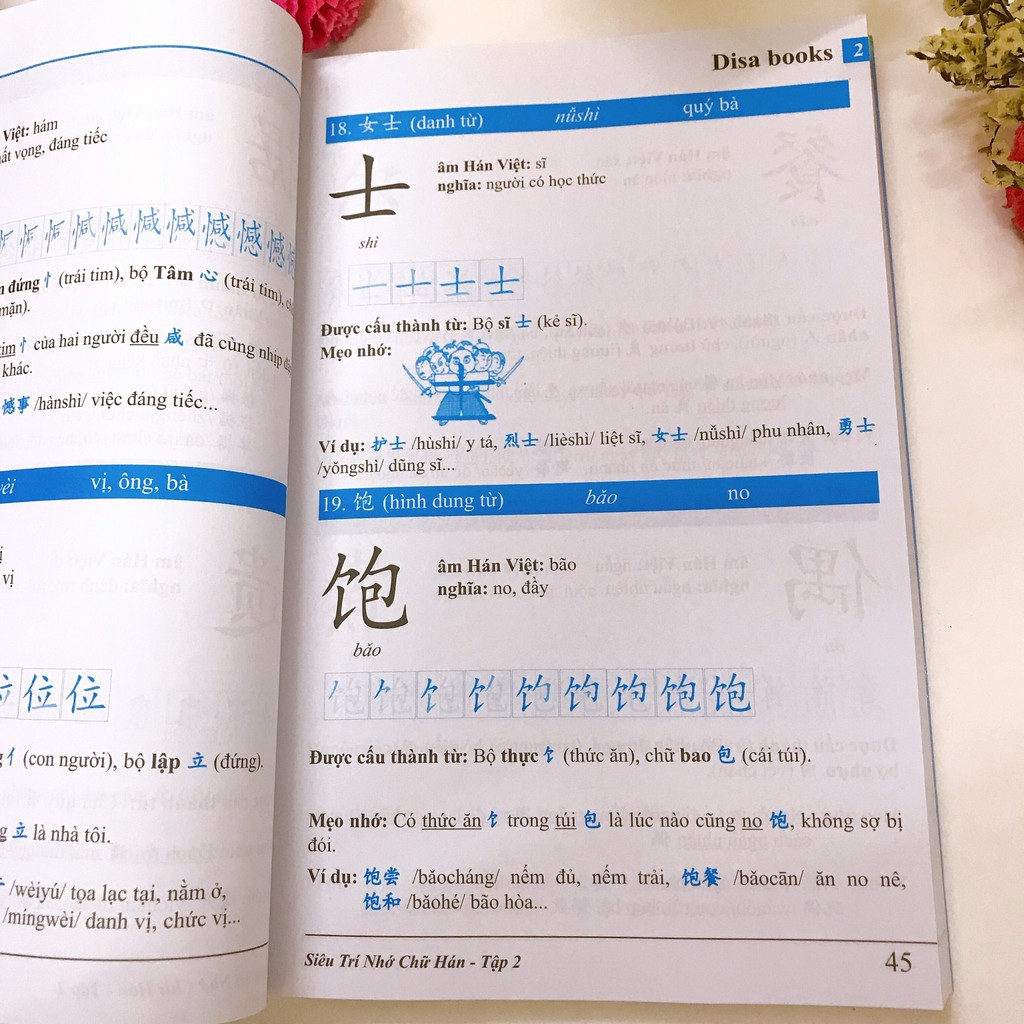 Việt: hám
ất vọng, đáng tiếc
đứng 忄 (trái tim), bộ Tâm 心 (trái tim),
mặn).
忄 của hai người đều 咸 đã cùng nhịp
khác.
憾事 /hànshì/ việc đáng tiếc...
vị, ông, bà
vị
位 位
亻 (con người), bộ lập 立 (đứng).
立 là nhà tôi.
/wèiyú/ tọa lạc tại, nằm ở,
/míngwèi/ danh vị, chức vị...
Disa books 2
18. 女士 (danh từ) nǚshì quý bà
士
âm Hán Việt: sĩ
nghĩa: người có học thức
shì
士 士 士 士
Được cấu thành từ: Bộ sĩ 士 (kẻ sĩ).
Mẹo nhớ:
Ví dụ: 护士 /hùshi/ y tá, 烈士 /lièshì/ liệt sĩ, 女士 /nǚshì/ phu nhân, 勇士
/yǒngshì/ dũng sĩ...
19. 饱 (hình dung từ) bǎo no
饱
âm Hán Việt: bão
nghĩa: no, đầy
bǎo
饱 饱 饱 饱 饱 饱 饱 饱 饱
Được cấu thành từ: Bộ thực 饣 (thức ăn), chữ bao 包 (cái túi).
Mẹo nhớ: Có thức ăn 饣 trong túi 包 là lúc nào cũng no 饱, không sợ bị
đói.
Ví dụ: 饱尝 /bǎocháng/ nếm đủ, nếm trải, 饱餐 /bǎocān/ ăn no nê,
饱和 /bǎohé/ bão hòa...
Siêu Trí Nhớ Chữ Hán - Tập 2 45